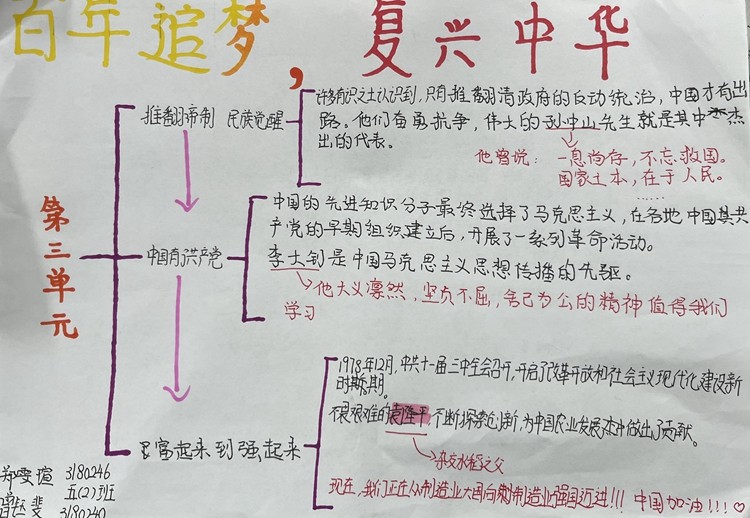 百年追梦，复兴中华
第三单元
推翻帝制 民族觉醒
许多有识之士认识到，只有推翻清政府的反动统治，中国才有出
路。他们奋勇抗争，伟大的孙中山先生就是其中杰
出的代表。
他曾说：一息尚存，不忘救国。
国家土本，在于人民。
……
中国有了共产党
中国的先进知识分子最终选择了马克思主义，在各地中国共
产党的早期组织建立后，开展了一系列革命活动。
李大钊是中国马克思主义思想传播的先驱。
他大义凛然，坚贞不屈，舍己为公的精神值得我们
学习
富起来到强起来
1978年12月，中共十一届三中全会召开，开启了改革开放和社会主义现代化建设新
时期。
不畏艰难的袁隆平不断探索创新，为中国农业发展做出了贡献。
杂交水稻之父
现在，我们正在从制造业大国向制造业强国迈进!!! 中国加油!!!♡
郑雯瑄 3180246
五(2)班
3180240